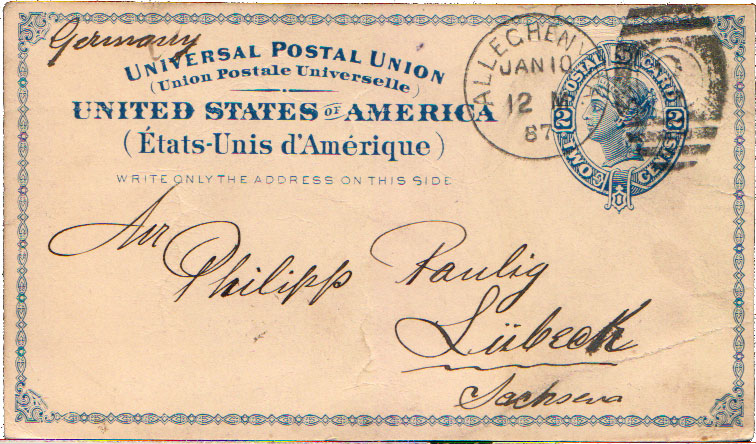 Germany
UNIVERSAL POSTAL UNION
(Union Postale Universelle)
UNITED STATES OF AMERICA
(États-Unis d'Amérique)
WRITE ONLY THE ADDRESS ON THIS SIDE
ALLEGHENY
JAN 10
12 M
87
POSTAL CARD
2 2
TWO CENTS
Philipp Paulig
Lübeck
Sachsen